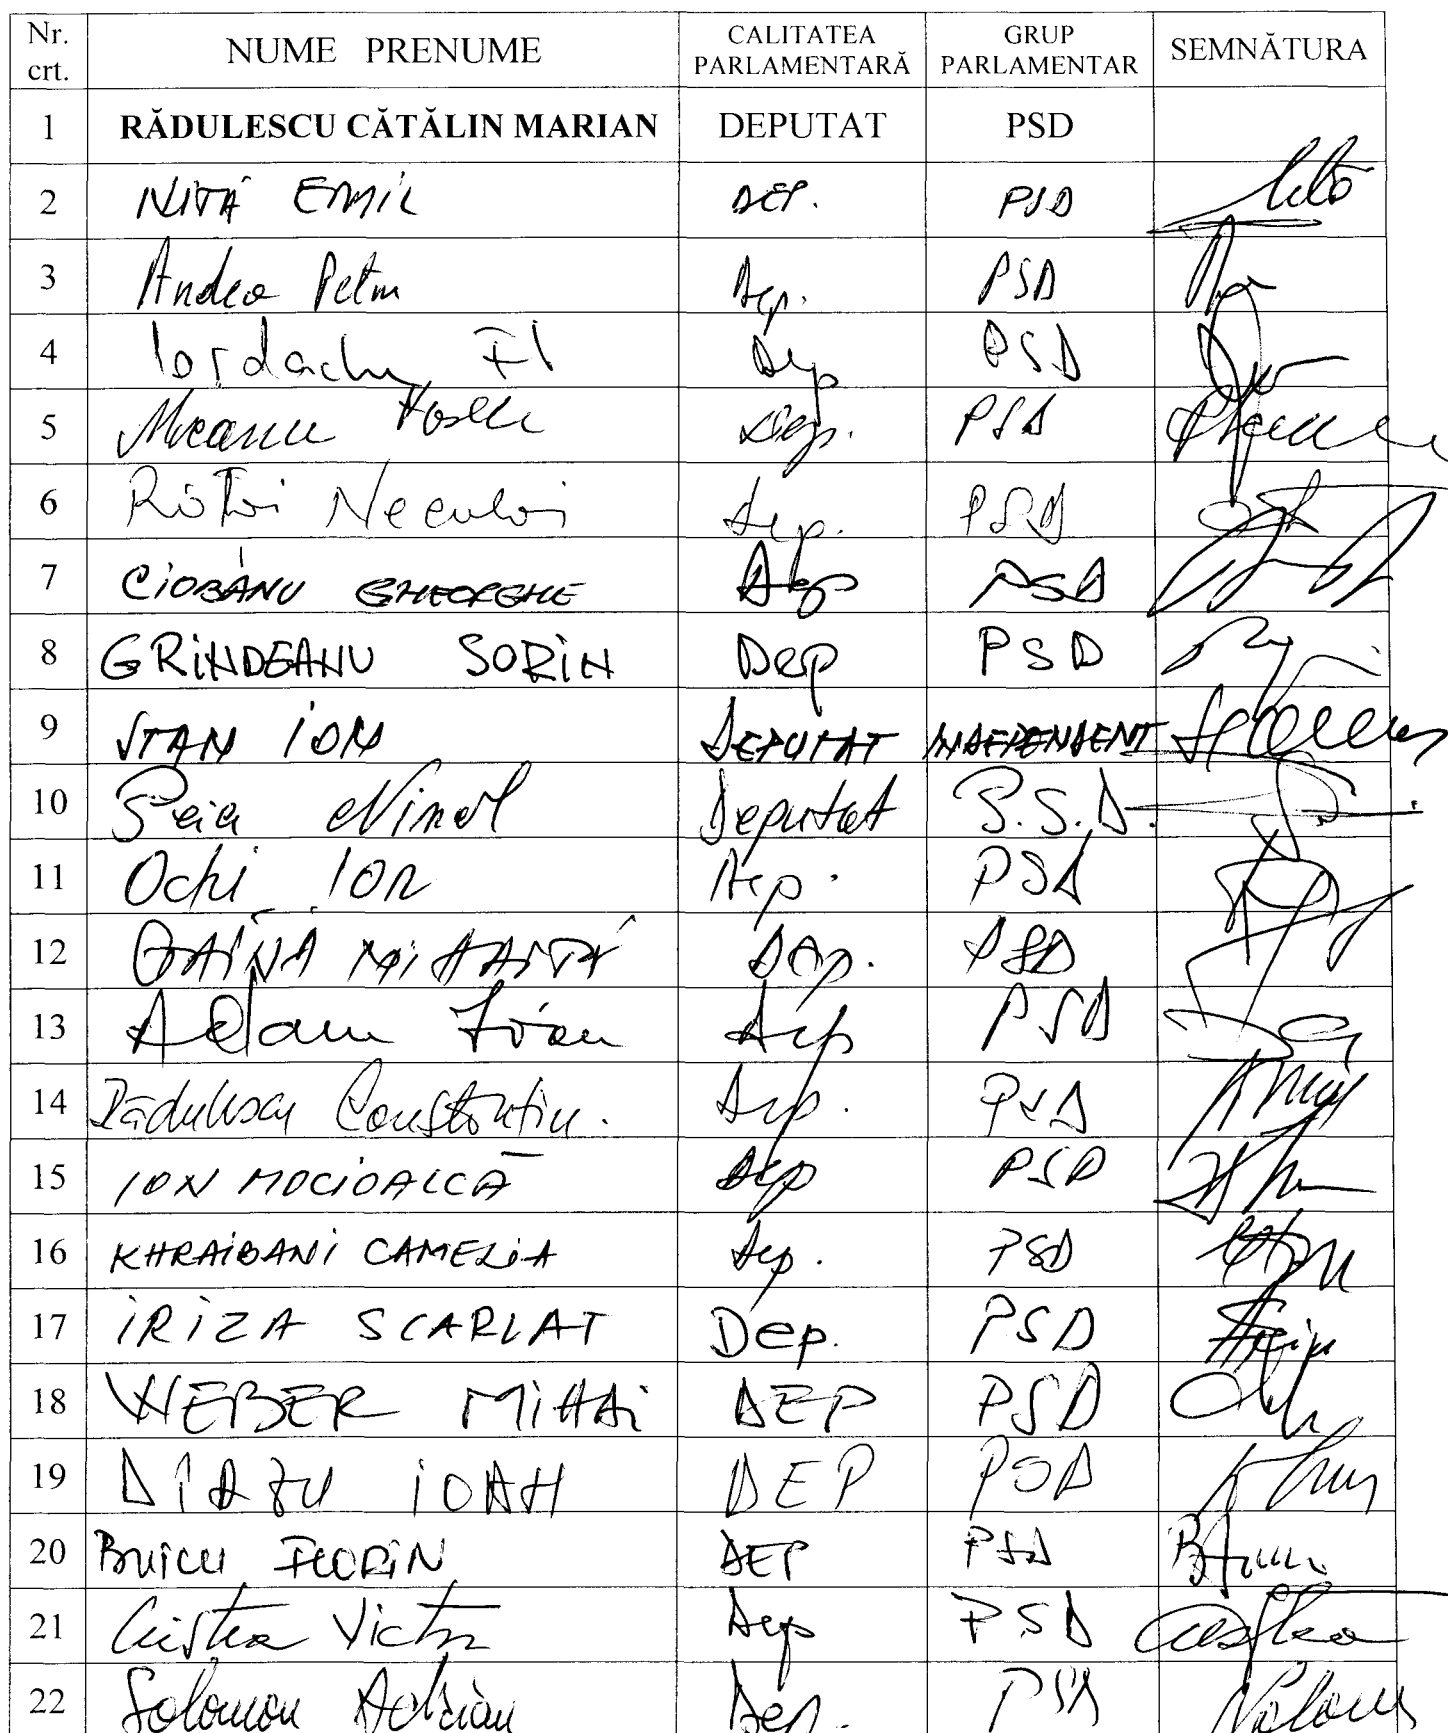 Nr. crt. NUME PRENUME CALITATEA PARLAMENTARĂ GRUP PARLAMENTAR SEMNĂTURA
1 RĂDULESCU CĂTĂLIN MARIAN DEPUTAT PSD
2 NIȚĂ EMIL DEP. PSD
3 Andea Petru Dep. PSD
4 Iordache Fl Dep PSD
5 Dep. PSD
6 Neculai Dep. PSD
7 CIOBANU GHEORGHE Dep PSD
8 GRINDEANU SORIN Dep PSD
9 STAN ION DEPUTAT INDEPENDENT
10 Peia Ninel Deputat P.S.D.
11 Ochi Ion Dep. PSD
12 GĂINĂ MIHĂIȚĂ Dep. PSD
13 Adam Ioan Dep PSD
14 Rădulescu Constantin. Dep. PSD
15 ION MOCIOALCĂ Dep PSD
16 KHRAIBANI CAMELIA Dep. PSD
17 IRIZA SCARLAT Dep. PSD
18 WEBER MIHAI DEP PSD
19 IOAN DEP PSD
20 BUICU FLORIN DEP PSD
21 Cristea Victor Dep PSD
22 Solomon Adrian Dep. PSD